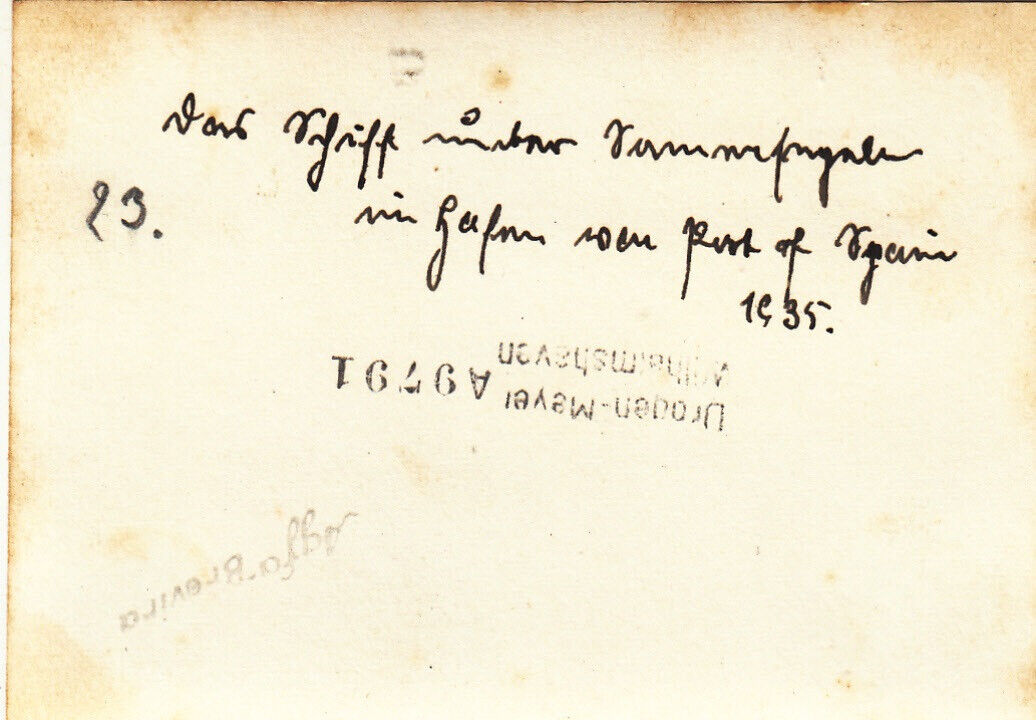 Das Schiff unter Sonnensegeln
23.
im Hafen von Port of Spain
1935.
Drogen-Meyer
Wilhelmshaven
A9791
Agfa-Brovira